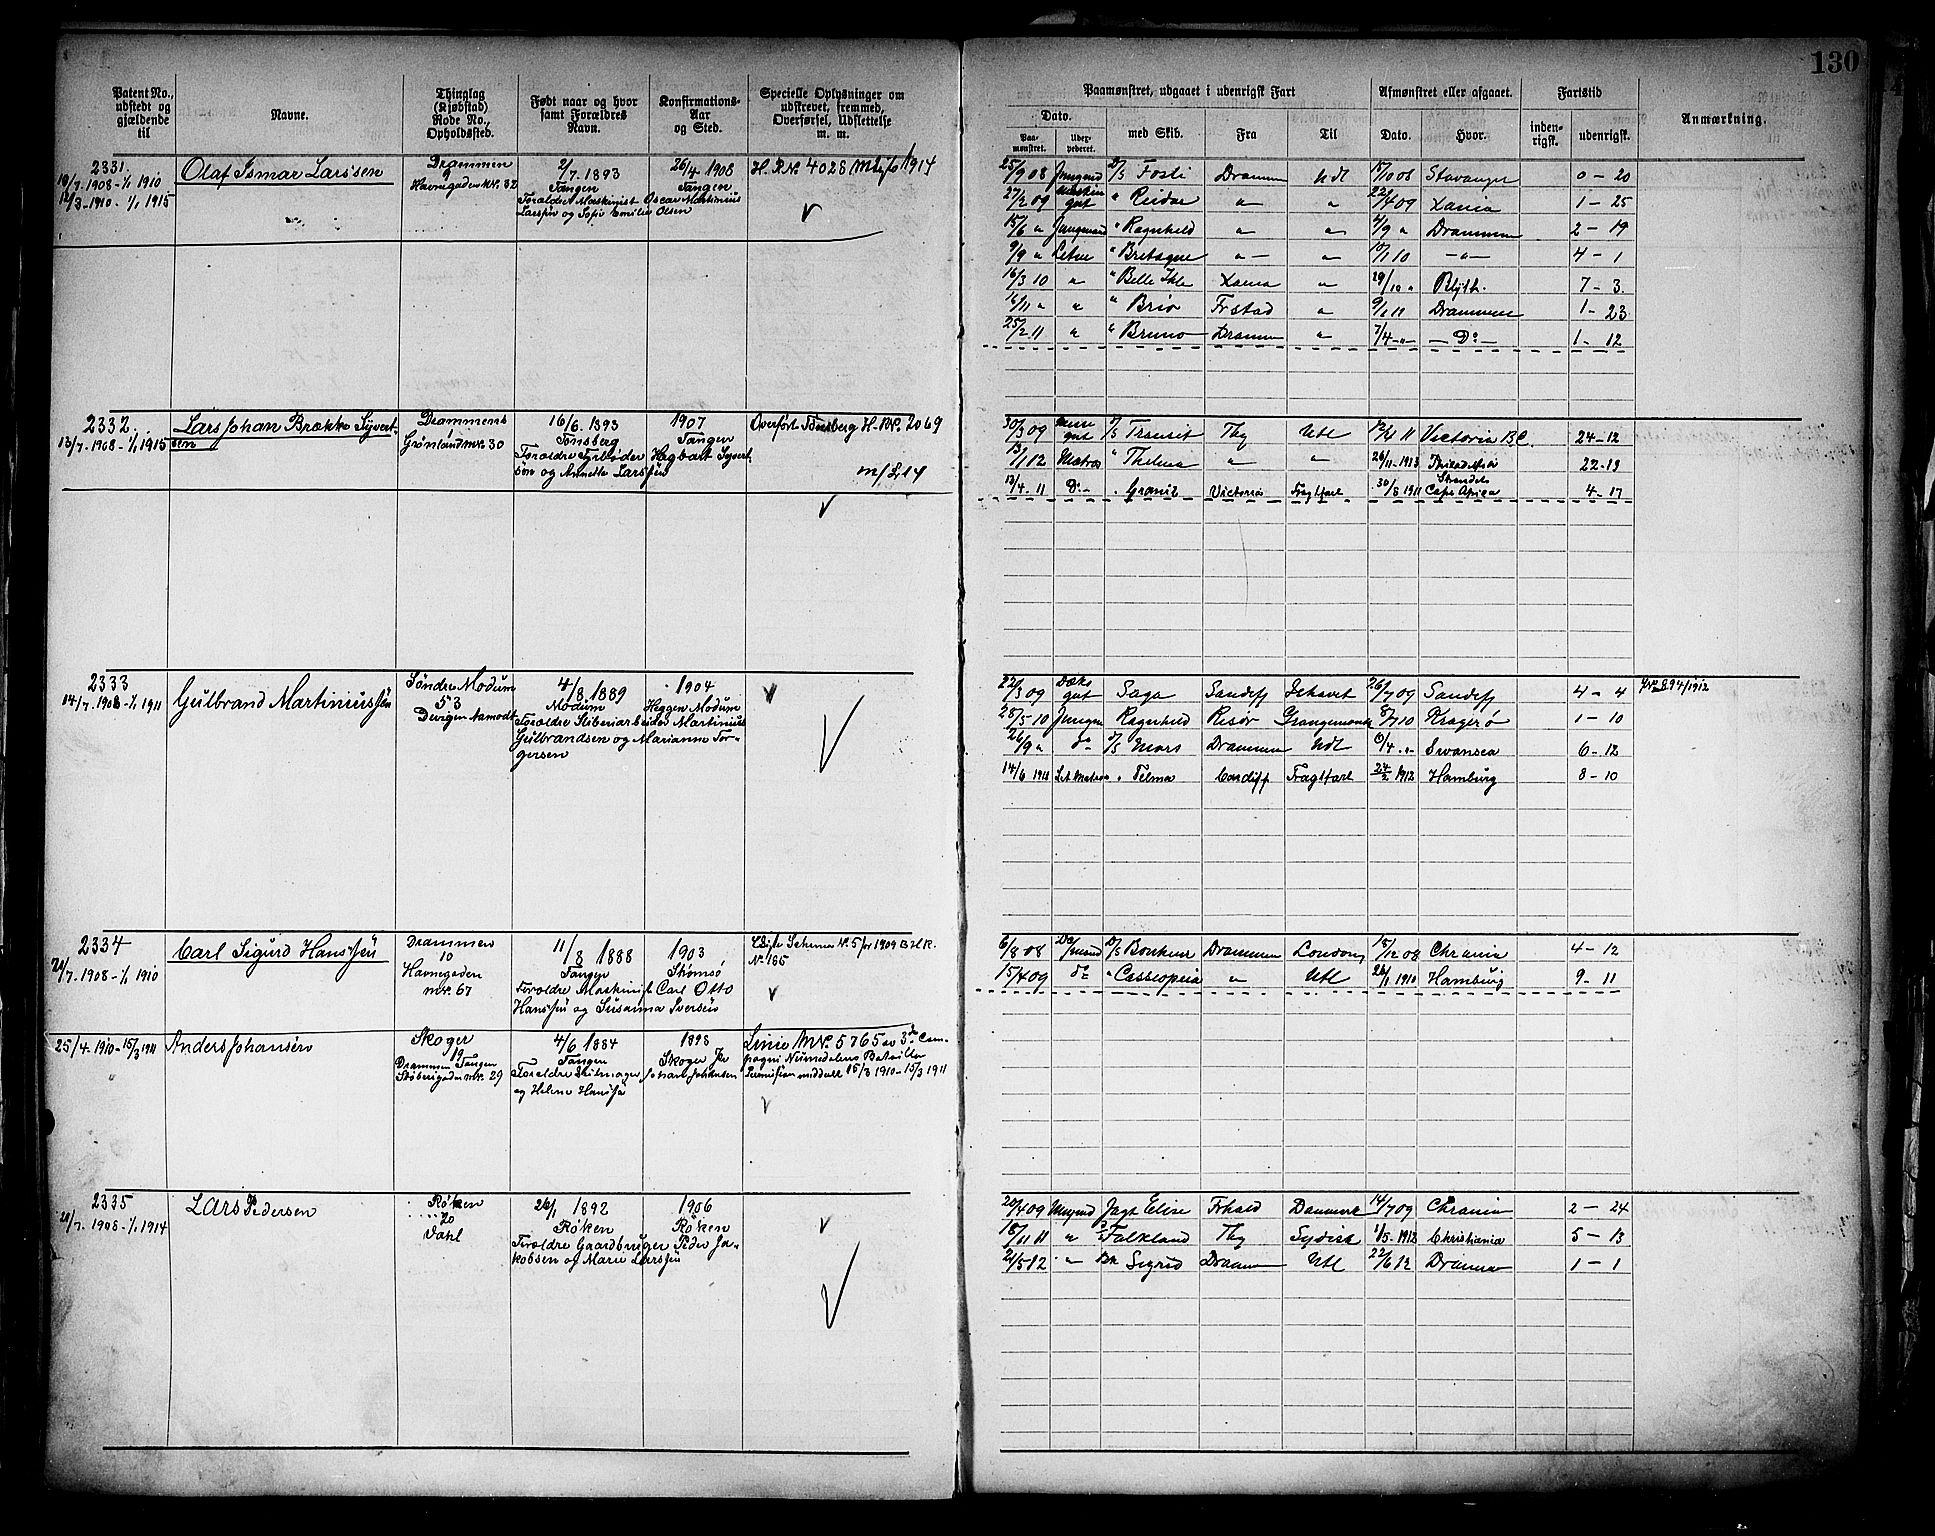 130
Patent No., udstedt og gjældende til
Navne.
Thinglag (Kjøbstad) Rode No., Opholdssted.
Født naar og hvor samt Forældres Navn.
Konfirmations- Aar og Sted.
Specielle Oplysninger om udskrevet, fremmed, Overførsel, Udslettelse m. m.
Paamønstret, udgaaet i udenrigsk Fart
Afmønstret eller afgaaet.
Fartstid
Anmærkning.
Dato.
Paa- mønstret.
med Skib.
Fra
Til
Dato.
Hvor.
inden- rigsk.
udenrigsk.
2331
10/7.1908 - 1/1 1910
12/3.1910 - 1/1 1915
Olaf Ismar Larssen
Drammen
9
Havnegaden Nr. 32
2/7. 1893
Tangen
Forældre Maskinist Oscar Martinius
Larssen og Sofie Emilie Olsen
26/4 1908
Tangen
H. R. No. 4028
1914
25/9 08 Jungmd D/S Fosli Drammen Udl 15/10 08 Stavanger 0 - 20
27/2 09 Maskingut " Reidar " " 22/4 09 Xania 1 - 25
15/6 " Jungmand " Ragnhild " " 4/9 " Drammen 2 - 19
9/9 " Letm " Bretagne " " 10/1 10 - " - 4 - 1
16/3 10 " " Belle Isle Xania " 29/10 " Blyth. 7 - 3
16/11 " " " Brio Frstad " 9/1 11 Drammen 1 - 23
25/2 11 " " Bruno Drammen " 7/4 - " - Do - 1 - 12
2332
13/7. 1908 - 1/1 1915
Lars Johan Brække Syvert-
sen
Drammens
1
Grønland Nr. 30
16/6. 1893
Tønsberg
Forældre Fyrbøder Hagbart Syvert-
sen og Annette Larssen
1907
Tangen
Overført Tønsberg H. R. No. 2069
30/3 09 D/S Transit Tbg Utl 12/4 11 Victoria B.C. 24 - 12
13/1 12 Matros " Thelma " " 26/11 - 1913 Philadelfia 22 - 13
13/4. 11 Do - " Granit Victoria Fragtfart 30/8 1911 Strandet Cape Africa 4 - 17
2333
14/7. 1908 - 1/1 1911
Gulbrand Martiniussen
Søndre Modum
53
4/8. 1889
Modum
Forældre Sliberiarbeider Martinius
Gulbrandsen og Marianne Tor-
gersen
1904
Heggen Modum
22/3 09 Dæksgut Saga Sandefj Ishavet 26/7 09 Sandefj 4 - 4
No. 894/1912
28/5 10 Jungm Ragnhild Risør Grangemouth 8/7 10 Kragerø 1 - 10
26/9 " do D/S Mars Drammen Udl 6/4. " Swansea 6 - 12
14/6 1911 Let Matros " Telma Cardiff Fragtfart 24/2 1912 Hamburg 8 - 10
2334
21/7. 1908 - 1/1 1910
Carl Sigurd Hanssen
Drammen
10
Havnegaden
Nr. 67
11/8 1888
Tangen
Forældre Maskinist Carl Otto
Hanssen og Susanna Iversen
1903
Strømsø
No. 5 for 1909 B. H. R.
No 165
6/8 08 D/S Drammen London 18/12 08 Chrania 4 - 12
15/4 09 do " Cassiopeia " Utl 26/1 1910 Hamburg 9 - 11
25/4. 1910 - 15/3 1911
Anders Johansen
Skoger
19
Drammen Tangen
Støberigaden Nr. 29
4/6 1884
Tangen
Forældre Skibstager Johan Johansen
og Helene Hanssen
1898
Skoger
Linie M No. 5765 av 3die Com-
pagni Numedalens Bataillon
Permission meddelt 15/3 1910 - 15/3 1911
2335
21/7. 1908 - 1/1 1914
Lars Pedersen
Røken
20
Dahl
26/1 1892
Røken
Forældre Gaardbruger Peder Ja-
kobsen og Marie Larssen
1906
Røken
20/4 09 Jagt Elise Frhald Danmark 14/7 09 Chrania 2 - 24
18/11 11 " Falkland Tbg Sydish 1/5 - 1912 Christiania 5 - 13
21/5 - 12 " Bk Sigrid Drammen Utl 22/6 12 Drammen 1 - 1